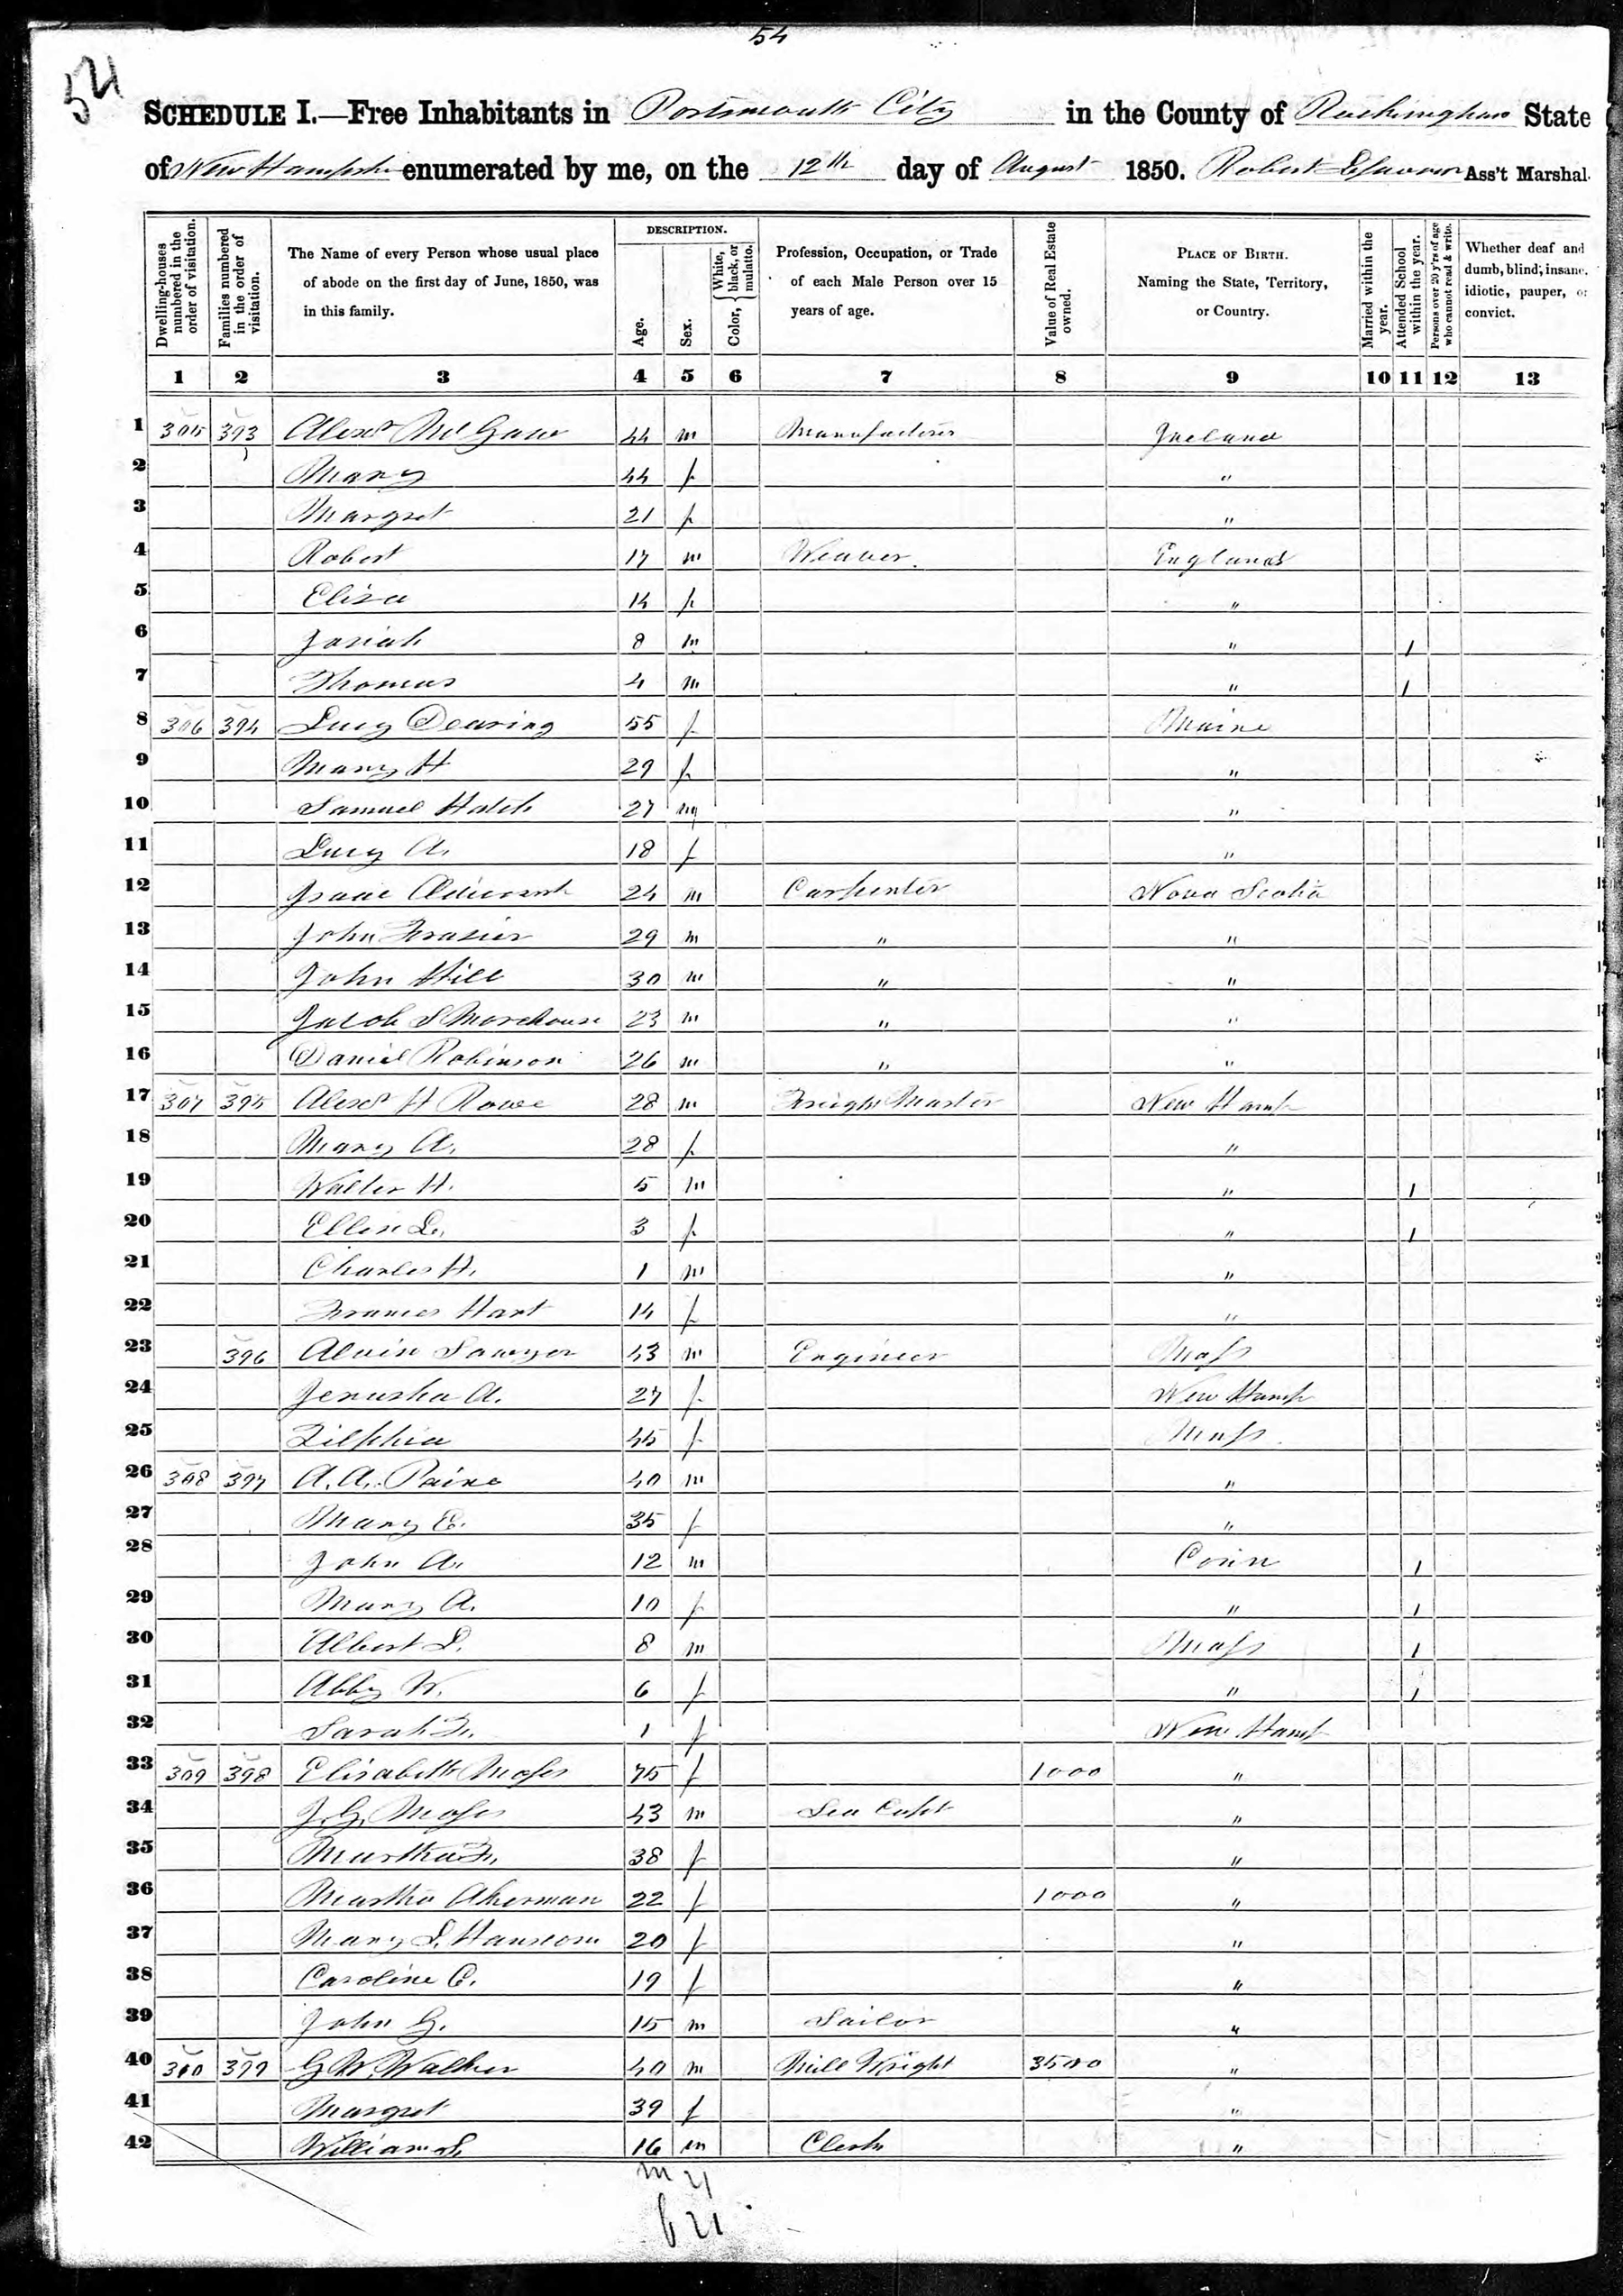 54
54
SCHEDULE I.—Free Inhabitants in Portsmouth City in the County of Rockingham State
of New Hampshire enumerated by me, on the 12th day of August 1850. Robert Ass't Marshal.
Dwelling-houses numbered in the order of visitation.
Families numbered in the order of visitation.
The Name of every Person whose usual place of abode on the first day of June, 1850, was in this family.
DESCRIPTION.
Age.
Sex.
Color, { White, black, or mulatto.
Profession, Occupation, or Trade of each Male Person over 15 years of age.
Value of Real Estate owned.
PLACE OF BIRTH. Naming the State, Territory, or Country.
Married within the year.
Attended School within the year.
Persons over 20 y'rs of age who cannot read & write.
Whether deaf and dumb, blind, insane, idiotic, pauper, or convict.
1 2 3 4 5 6 7 8 9 10 11 12 13
1 305 393 Alexr McGaw 44 m Manufacturer Ireland
2 Mary 44 f "
3 Margret 21 f "
4 Robert 17 m Weaver. England
5 Eliza 14 f "
6 Josiah 8 m " 1
7 Thomas 4 m " 1
8 306 394 Lucy Dearing 55 f Maine
9 Mary H 29 f "
10 Samuel Hatch 27 m "
11 Lucy A. 18 f "
12 Isaac 24 m Carpenter Nova Scotia
13 John Frasier 29 m " "
14 John Hill 30 m " "
15 Jacob S Morehouse 23 m " "
16 Daniel Robinson 26 m " "
17 307 395 Alexr H Rowe 28 m Freight Master New Hamp
18 Mary A. 28 f "
19 Walter H. 5 m " 1
20 Ellen L. 3 f " 1
21 Charles H. 1 m "
22 Frances Hart 14 f "
23 396 Alvin Sawyer 43 m Engineer Mass
24 Jerusha A. 27 f New Hamp
25 Zilphia 45 f Mass.
26 308 397 A. A. Paine 40 m "
27 Mary E. 35 f "
28 John A. 12 m Conn 1
29 Mary A. 10 f " 1
30 Albert D. 8 m Mass 1
31 Abby W. 6 f " 1
32 Sarah F. 1 f New Hamp
33 309 398 Elisabeth Moses 75 f 1000 "
34 J. G. Moses 43 m Sea Capt "
35 Martha F. 38 f "
36 Martha Akerman 22 f 1000 "
37 Mary S. Hanscom 20 f "
38 Caroline C. 19 f "
39 John G. 15 m Sailor "
40 310 399 G W. Walker 40 m Mill Wright 3500 "
41 Margret 39 f "
42 William S. 16 m Clerk "
m 21
f 21